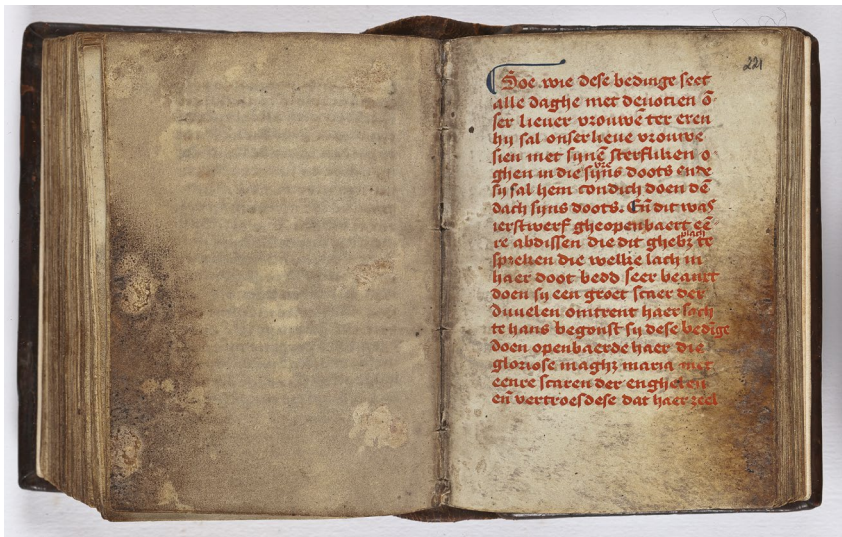 221
Soe wie dese bedinge leet
alle daghe met deuotien ō-
ser lieuer vrouwē ter eren
hij sal onser lieue vrouwe
sien met sijnē sterfliken o
ghen in die vre sijns doots ende
sij sal hem condich doen dē
dach sijns doots. Eñ dit was
ierstwerf gheopenbaert eē
re abdissen die dit ghebꝫ plach te
spreken die welke lach in
haer doot bedd seer beanxt
doen sij een groet scaer der
duuelen omtrent haer sach
te hans begonst sij dese bedige
doen openbaerde haer die
gloriose maghꝫ maria met
eenre scaren der enghelen
eñ vertroesdese dat haer zeel